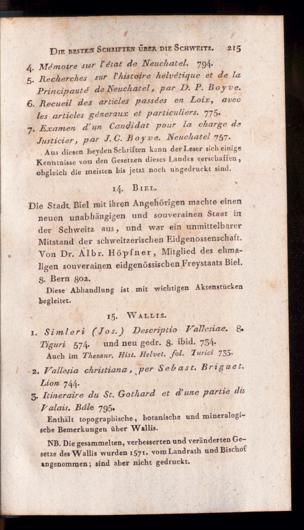 DIE BESTEN SCHRIFTEN ÜBER DIE SCHWEITZ. 215
4. Mémoire sur l'état de Neuchatel. 794.
5. Recherches sur l'histoire helvétique et de la
Principauté de Neuchatel, par D. P. Boyve.
6. Recueil des articles passées en Loix, avec
les articles géneraux et particuliers. 775.
7. Examen d'un Candidat pour la charge de
Justicier, par J. C. Boyve. Neuchatel 757.
Aus diesen beyden Schriften kann der Leser sich einige
Kenntnisse von den Gesetzen dieses Landes verschaffen,
obgleich die meisten bis jetzt noch ungedruckt sind.
14. BIEL.
Die Stadt Biel mit ihren Angehörigen machte einen
neuen unabhängigen und souverainen Staat in
der Schweitz aus, und war ein unmittelbarer
Mitstand der schweitzerischen Eidgenossenschaft.
Von Dr. Albr. Höpfner, Mitglied des ehma-
ligen souverainen eidgenössischen Freystaats Biel.
8. Bern 802.
Diese Abhandlung ist mit wichtigen Aktenstücken
begleitet.
15. WALLIS.
1. Simleri (Jos.) Descriptio Vallesiae. 8.
Tiguri 574. und neu gedr. 8. ibid. 754.
Auch im Thesaur. Hist. Helvet. fol. Turici 735.
2. Vallesia christiana, per Sebast. Briguet.
Lion 744.
3. Itineraire du St. Gothard et d'une partie du
Valais. Bâle 795.
Enthält topographische, botanische und mineralogi-
sche Bemerkungen über Wallis.
NB. Die gesammelten, verbesserten und veränderten Ge-
setze des Wallis wurden 1571. vom Landrath und Bischof
angenommen; sind aber nicht gedruckt.